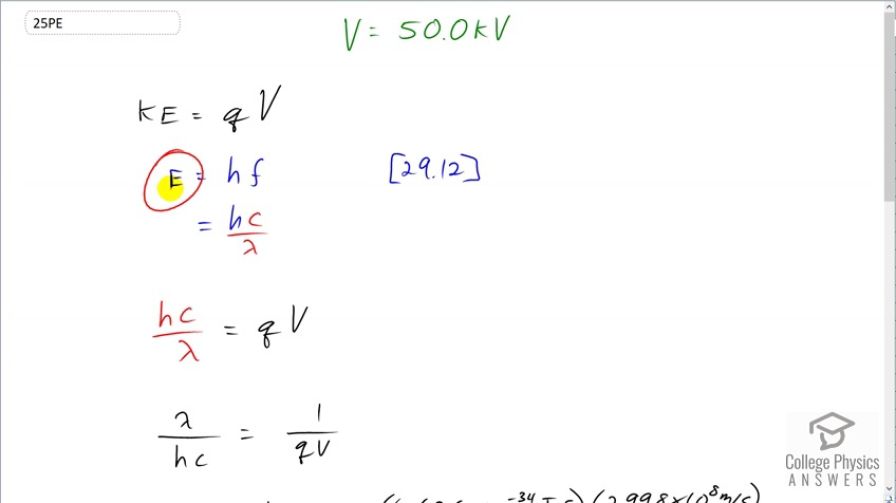 25PE
V = 50.0kV
KE = qV
E = hf [29.12]
= hc/λ
hc/λ = qV
λ/hc = 1/qV
College Physics
ANSWERS